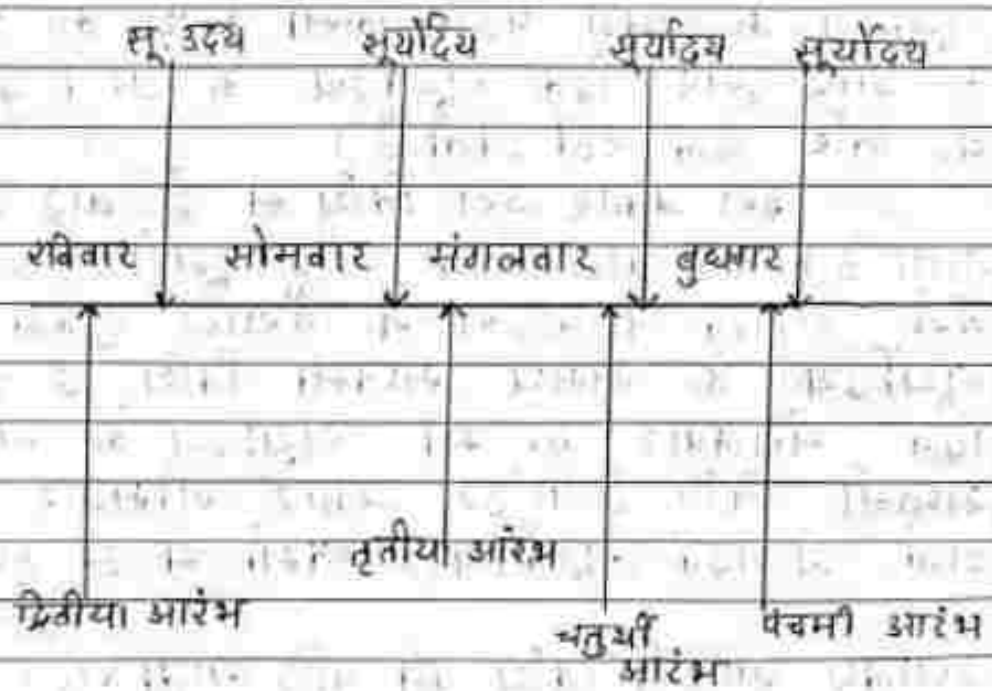 सू. उदय सूर्योदय सूर्योदय सूर्योदय
रविवार सोमवार मंगलवार बुधवार
तृतीया आरंभ
द्वितीया आरंभ
चतुर्थी आरंभ
पंचमी आरंभ